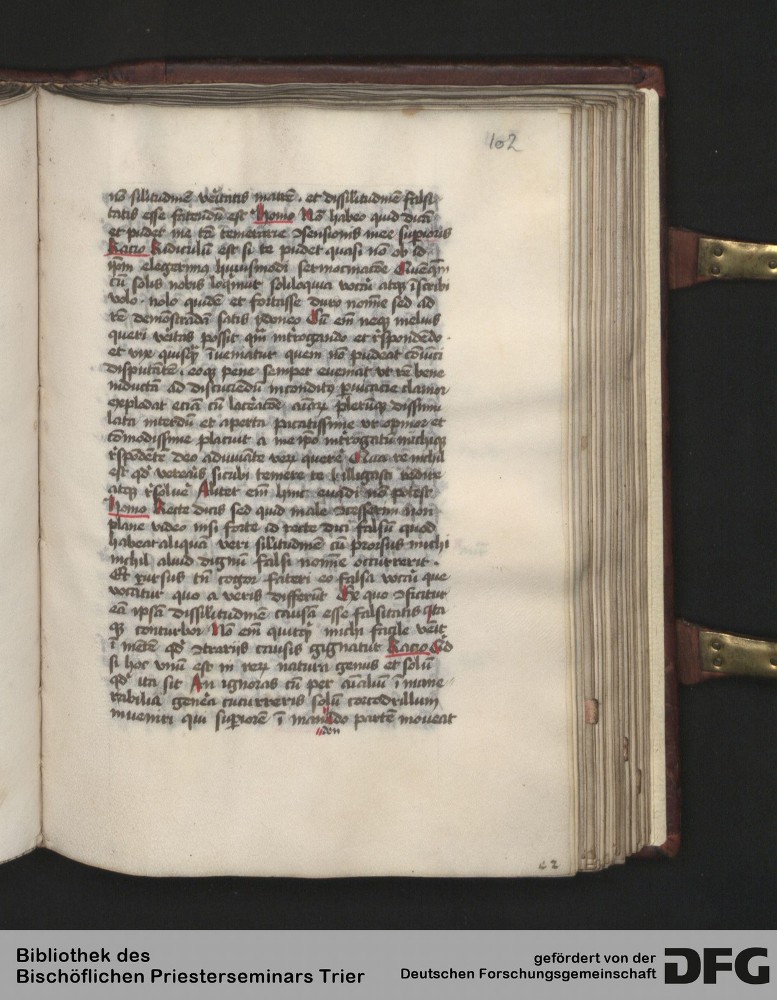 102
nō silitudinē veritatis matrē . et dissilitudinē falsi
tatis esse fatendū est Homo Nō habeo quid dicā
et pudet me tā temerarie ꝯsensionis mee suꝑioris
Racio Ridiculū est si te pudet quasi nō ob id
ip̄m elegerimꝰ huiusmodi sermocinacōe Que qm̄
cū solis nobis loqͥmur soliloquia vocari atqꝫ īscribi
volo . nolo quidē et fortasse duro nomīe sed ad
rē demōstrādā satis ydoneo Cū em̄ neqꝫ melius
queri v̓itas possit qͣm īntrogando et r̓spondēdo .
et vix quisqͣ īueniatur quem nō pudeat cōuīci
disputātē . eoqꝫ pene semper eueniat vt rē bene
inductā ad discuciēdū inconditꝰ ꝑuicacie clamor
explodat eciā cū lac̓acōe aīorꝫ pler̄ūqꝫ dissimu
lata interdū et aperta pacatissime vt opinor et
cōmodissime placuit a me ip̄o īntrogatū michiqꝫ
r̓spōdētē deo adiuuāte verū querere Quare nichil
est qd̓ vereaꝛis sicubi temere te illigasti redire
atqꝫ r̓solue̓ Aliter em̄ hinc euadi nō potest
Homo Recte dicis sed quid male ꝯcesserim non
plane video nisi forte id recte dici falsū quod
habeat aliquā veri silitudinē cū prorsus michi
nichil aliud dignū falsi nomīe occurrerit .
Et rursus tn̄ cogor fateri eo falsa vocari que
vocātur quo a veris differūt Ex quo ꝯficitur
eā ipsā dissilitudinē causā esse falsitatis Ita
qꝫ conturbor Nō em̄ quicqͣ michi facile venit
ī mētē qd̓ ꝯtrarijs causis gignatur Racio Qͥd
si hoc vnū est in rerū natura genus et solū
qd̓ ita sit An ignoras cū per aīaliū īnume
rabilia gen̓a cucurreris solū cocodrillum
inueniri qui suꝑiorē ī mandēdo partē moueat
den
Bibliothek des
Bischöflichen Priesterseminars Trier
gefördert von der
Deutschen Forschungsgemeinschaft
DFG